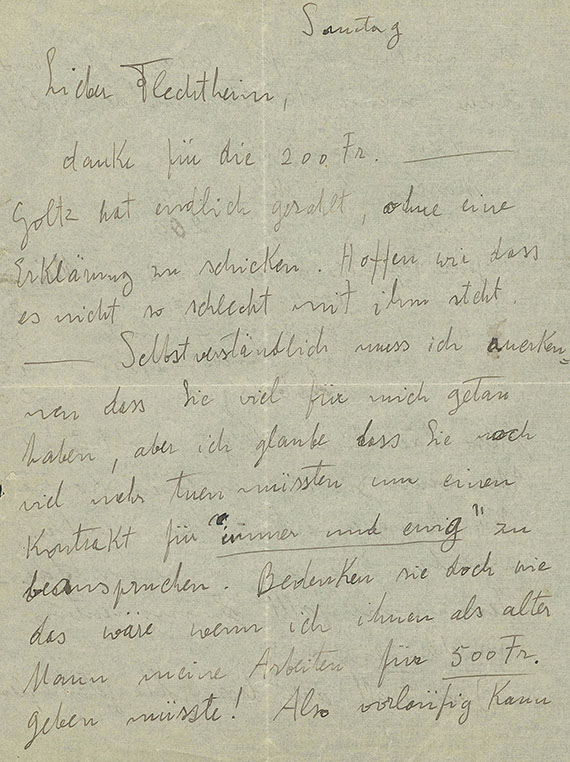 Sonntag
Lieber Flechtheim,
danke für die 200 Fr. ——
Goltz hat endlich gezahlt, ohne eine
Erklärung zu schicken. Hoffen wir dass
es nicht so schlecht mit ihm steht.
—— Selbstverständlich muss ich anerken=
nen dass Sie viel für mich getan
haben, aber ich glaube dass Sie noch
viel mehr tuen müssten um einen
Kontrakt für "immer und ewig" zu
beanspruchen. Bedenken sie doch wie
das wäre wenn ich ihnen als alter
Mann meine Arbeiten für 500 Fr.
geben müsste! Also vorläufig kann